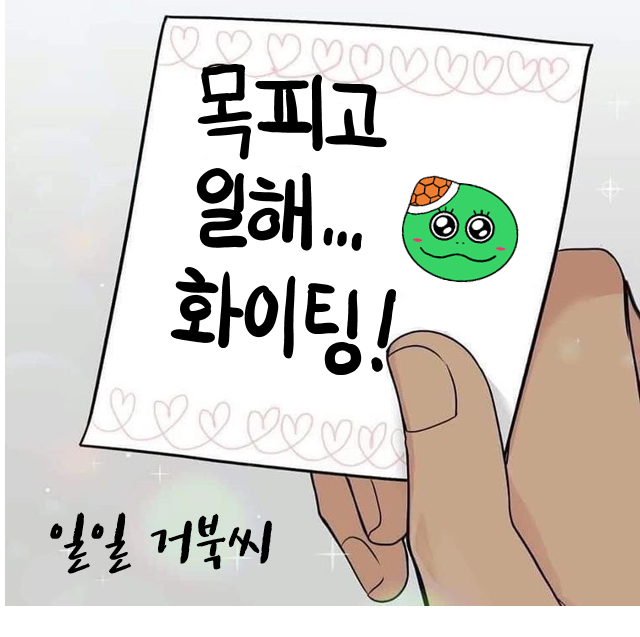 목피고
일해...
화이팅!
일일 거북씨